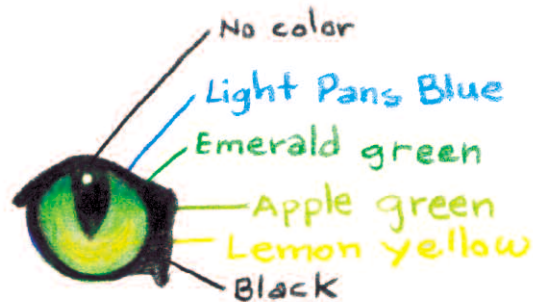 No color
Light Pans Blue
Emerald green
Apple green
Lemon yellow
Black